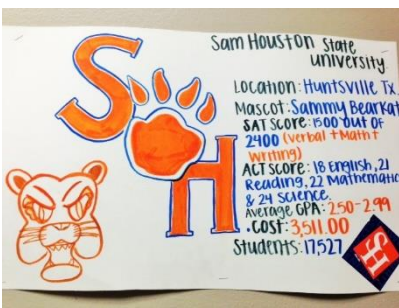 Sam Houston State
University.
Location: Huntsville Tx.
Mascot: Sammy Bearkat
SAT SCORE: 1500 out OF
2400 (verbal + Math +
writing)
ACT SCORE: 18 English, 21
Reading, 22 Mathematic
& 24 Science.
Average GPA: 2.50-2.99
.COST: 3,511.00
Students: 17,527
S H
SH